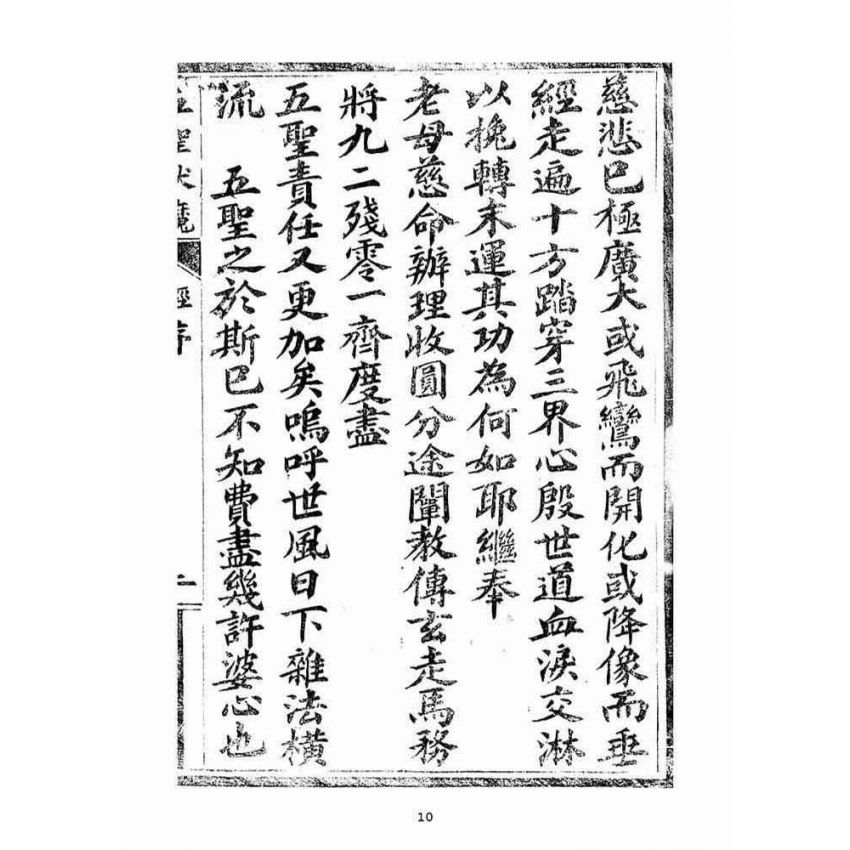 慈悲已極廣大或飛鸞而開化或降像而垂
經走遍十方踏穿三界心殷世道血淚交淋
以挽轉末運其功為何如耶繼奉
老母慈命辦理收圓分途闡教傳玄走馬務
將九二殘零一齊度盡
五聖責任又更加矣嗚呼世風日下雜法橫
流 五聖之於斯已不知費盡幾許婆心也
五聖伏魔 經序 二
10